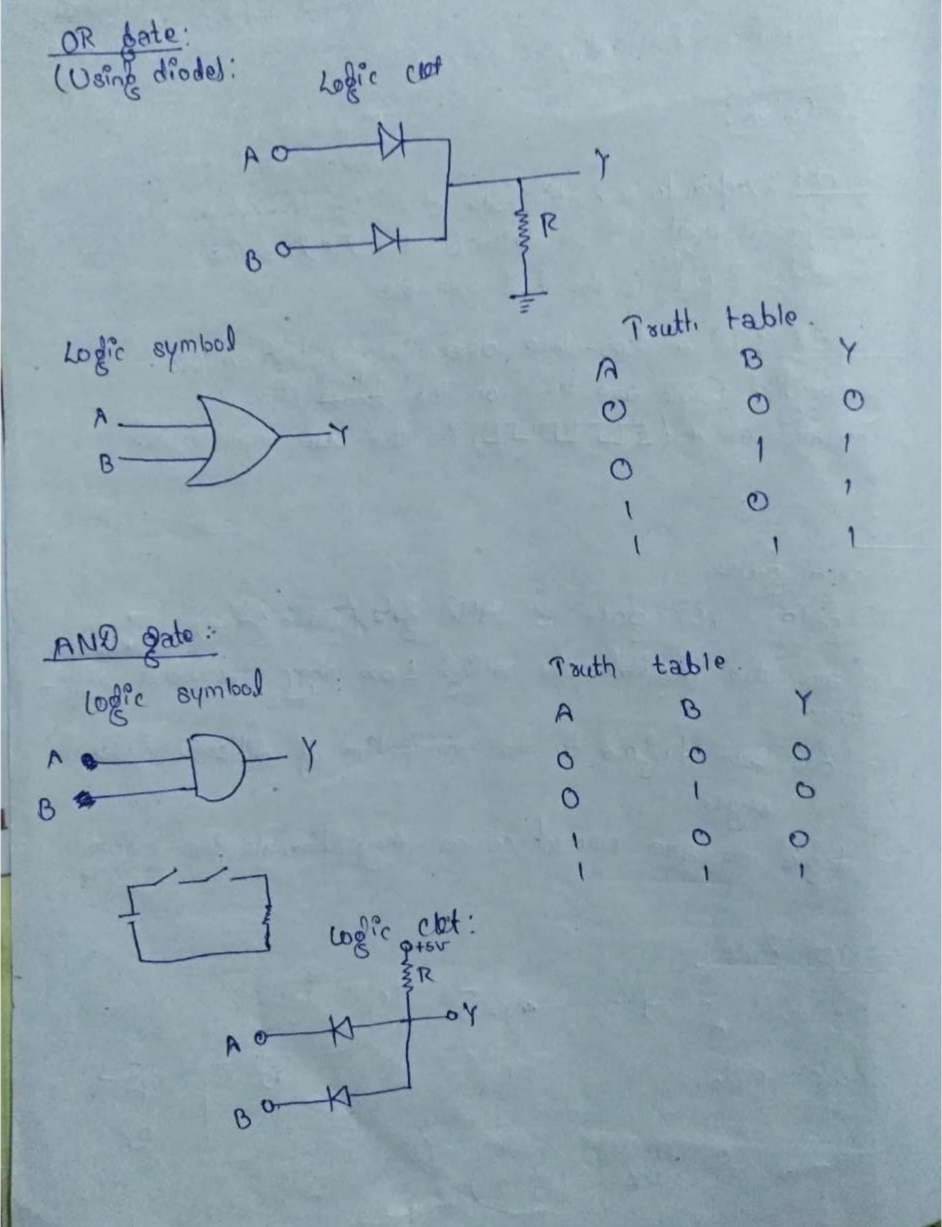 OR gate:
(Using diode):
Logic ckt
A
Y
B
R
Logic symbol
A
Y
B
Truth table.
A B Y
0 0 0
0 1 1
1 0 1
1 1 1
AND gate:-
Logic symbol
A
Y
B
Truth table.
A B Y
0 0 0
0 1 0
1 0 0
1 1 1
Logic ckt:
+5V
R
A
Y
B